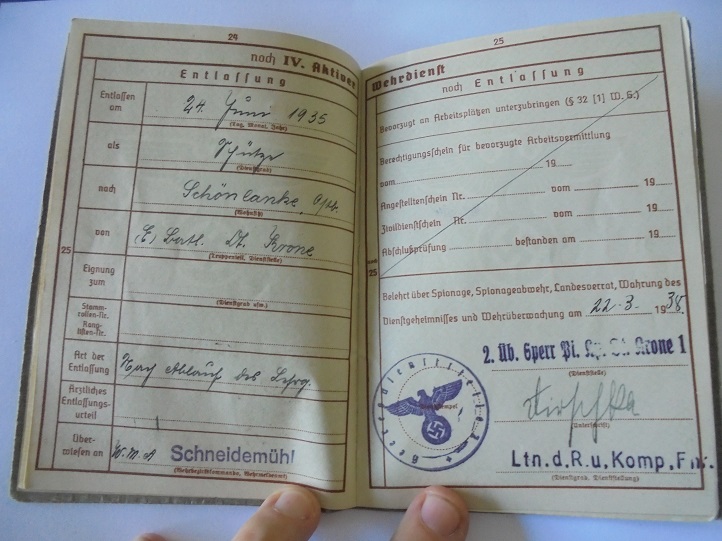 24
noch IV. Aktiver
Entlassung
Entlassen am
24. Juni 1935
(Tag, Monat, Jahr)
als
Schütze
(Dienstgrad)
nach
Schönlanke,
(Wohnsitz)
von
(E) Batl. Dt. Krone
(Truppenteil, Dienststelle)
25
Eignung zum
(Dienstgrad usw.)
Stamm-
rollen-Nr.
Rang-
listen-Nr.
Art der
Entlassung
Nach Ablauf des Lehrg.
Ärztliches
Entlassungs-
urteil
Über-
wiesen an
W.M.A Schneidemühl
(Wehrbezirkskommando, Wehrmeldeamt)
25
Wehrdienst
noch Entlassung
Bevorzugt an Arbeitsplätzen unterzubringen (§ 32 [1] W. G.)
Berechtigungsschein für bevorzugte Arbeitsvermittlung
vom 19
Angestelltenschein Nr. vom 19
Zivildienstschein Nr. vom 19
Abschlußprüfung bestanden am 19
noch
25
Belehrt über Spionage, Spionageabwehr, Landesverrat, Wahrung des
Dienstgeheimnisses und Wehrüberwachung am 22.3. 1938
2. Üb. Sperr Pi. Kp. Dt. Krone 1
(Dienststelle)
(Unterschrift)
Ltn.d.R.u.Komp.F
(Dienstgrad, Dienststellung)